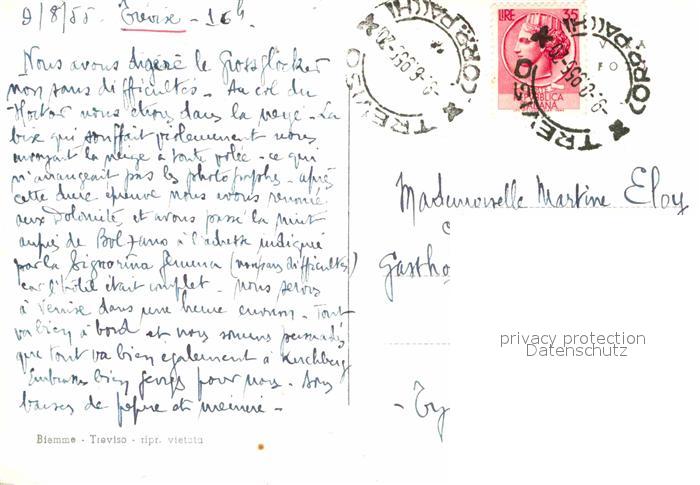 9/8/55. Trévise - 16h
Nous avons digéré le Grossglöcker
non sans difficultés - Au col du
Hochtor nous étions dans la neige - La
bise qui soufflait violemment nous
envoyait la neige à toute volée - ce qui
n'arrangeait pas les photographes - après
cette dure épreuve nous avons renoncé
aux Dolomites et avons passé la nuit
auprès de Bolzano à l'adresse indiquée
par la Signorina Gemma (non sans difficultés)
car l'hôtel était complet - nous serons
à Venise dans une heure environ - Tout
va bien à bord et nous sommes persuadés
que tout va bien également à Kirchberg
Embrassez bien pour nous - Bons
baisers de et
Biemme - Treviso - ripr. vietata
TREVISO
CORR. PACCHI
LIRE 35
TREVISO
CORR. PACCHI
Mademoiselle Martine Eloy
Gastho
privacy protection
Datenschutz
- Ty